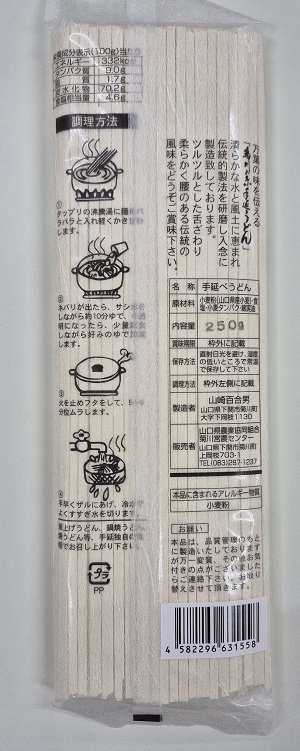 栄養成分表示(100g)当たり
エネルギー 332kcal
タンパク質 9.0g
脂質 1.7g
炭水化物 70.2g
食塩相当量 4.6g
調理方法
①
タップリの沸騰湯に麺をバ
ラバラと入れ軽くかきまわ
します。
②
ネバリが出たら、サシ水を
しながら約10分ゆで、半透
明になったら、少量試食
しながら好みのゆで加減
します。
③
火を止めフタをして、5〜
分位ムラします。
④
手早くザルにあげ、冷水で
よくすすぎ水を切ります。
釜上げうどん、鍋焼うどん、
うどん等、手延独自の食
でお召し上がり下さい。
プラ
PP
万葉の味を伝える
清らかな水と風土に恵まれ
伝統的製法を研磨し入念に
製造致しております。
ツルツルとした舌ざわり
柔らかく腰のある伝統の
風味をどうぞご賞味下さい。
名称 手延べうどん
原材料 小麦粉(山口県産小麦)・食
塩・小麦タンパク・綿実油
内容量 250g
賞味期限 枠外に記載
保存方法 直射日光を避け、湿度
の低いところで常温
で保存して下さい
調理方法 枠外左側に記載
製造者 山崎百合男
山口県下関市菊川町
大字下岡枝1130
販売者 山口県農業協同組合
菊川営農センター
山口県下関市菊川町
上岡枝703-1
TEL(083)287-1237
本品に含まれるアレルギー物質
小麦粉
お願い
本品は、品質管理のもと
に製造いたしておりますが
万一変質、その他お気
付きの点がございましたら
ご連絡下さい。お取り
替えさせて頂きます。
4 582296 631558